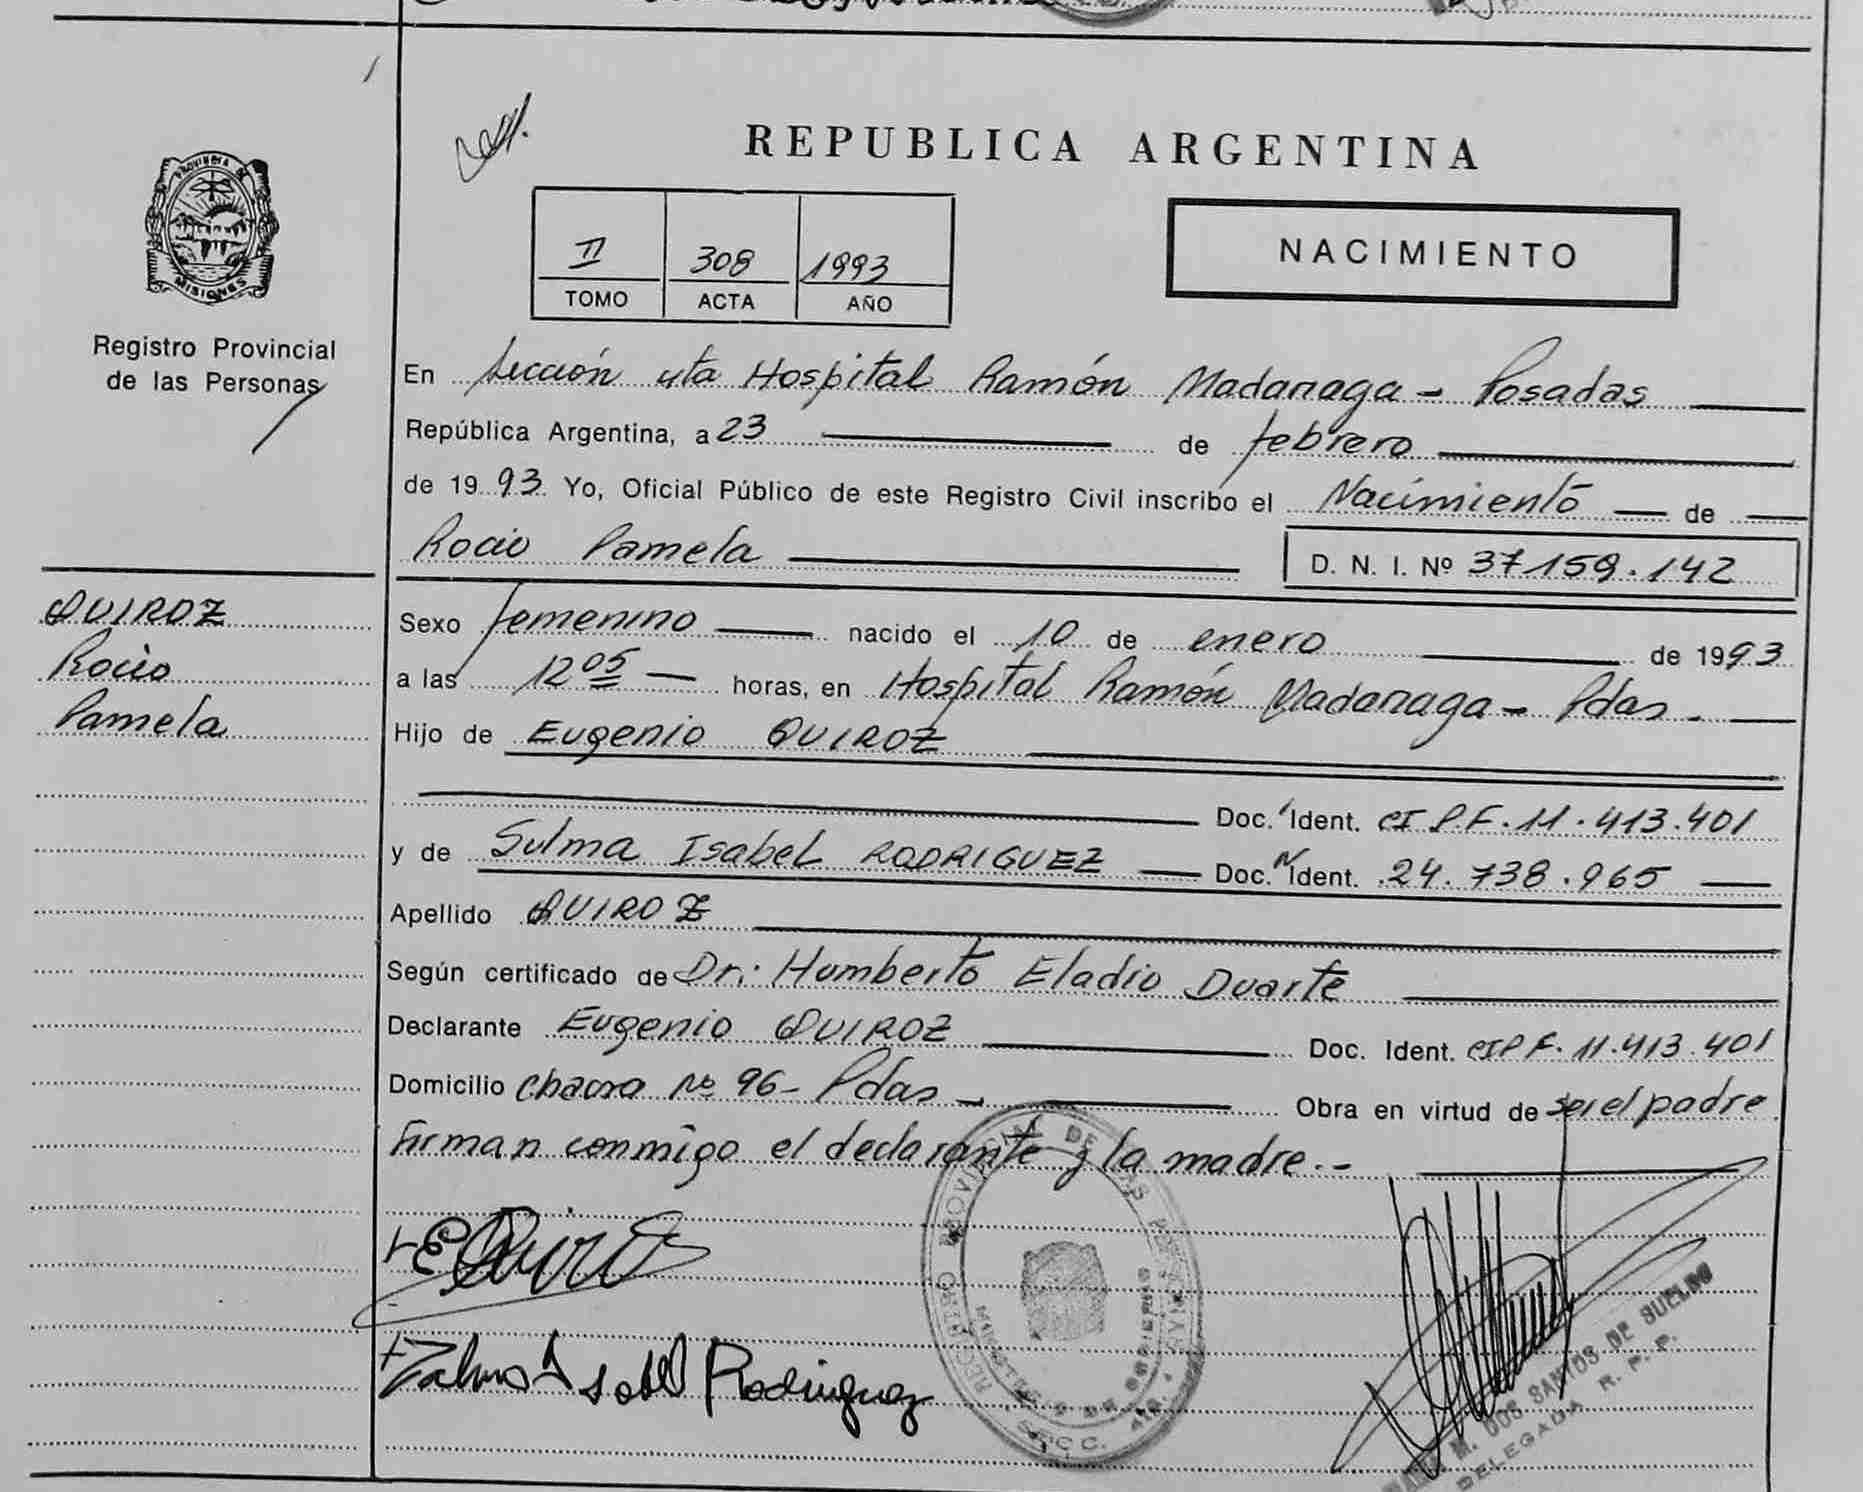 PROVINCIA DE
MISIONES
Registro Provincial
de las Personas
QUIROZ
Rocio
Pamela
REPUBLICA ARGENTINA
II 308 1993
TOMO ACTA AÑO
NACIMIENTO
En Sección 4ta Hospital Ramón Madariaga - Posadas
República Argentina, a 23 de febrero
de 1993 Yo, Oficial Público de este Registro Civil inscribo el Nacimiento de
Rocio Pamela D. N. I. Nº 37.159.142
Sexo femenino nacido el 10 de enero de 1993
a las 12 05 horas, en Hospital Ramón Madariaga - Pdas -
Hijo de Eugenio QUIROZ
Doc. Ident. CI P F. 11.413.401
y de Sulma Isabel RODRIGUEZ Doc. N Ident. 24.738.965
Apellido QUIROZ
Según certificado de Dr: Humberto Eladio Duarte
Declarante Eugenio QUIROZ Doc. Ident. CIPF. 11.413.401
Domicilio chacra Nº 96 - Pdas - Obra en virtud de ser el padre
Firman conmigo el declarante y la madre.-
E Quiroz
Zulma Isabel Rodriguez
REGISTRO PROVINCIAL DE LAS PERSONAS
MINISTERIO DE GOBIERNO
SECC. 4ta.
M. DOS SANTOS DE SUELDO
DELEGADA R. P. P.